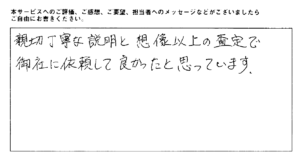 本サービスへのご評価、ご感想、ご要望、担当者へのメッセージなどがございましたら
ご自由にお書きください。
親切丁寧な説明と想像以上の査定で
御社に依頼して良かったと思っています。